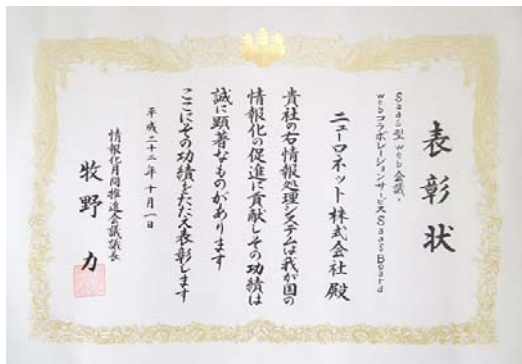 表彰状
SaaS型web会議・
webコラボレーションサービスSaaSBoard
ニューロネット株式会社殿
貴社の右情報処理システムは我が国の
情報化の促進に貢献しその功績は
誠に顕著なものがあります
ここにその功績をたたえ表彰します
平成二十二年十月一日
情報化月間推進会議議長
牧野力